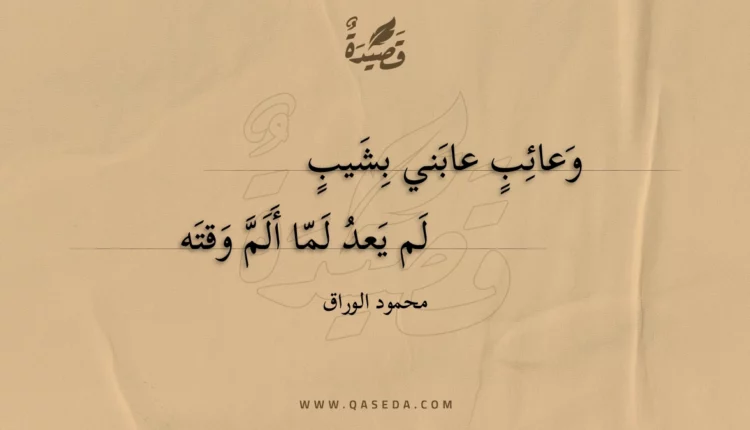 قَصِيدَةٌ
وَعائِبٍ عابَني بِشَيبٍ
لَم يَعدُ لَمّا أَلَمَّ وَقتَه
محمود الوراق
WWW.QASEDA.COM